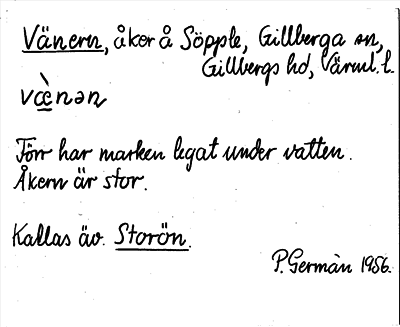 Vänern, åker å Söpple, Gillberga sn,
Gillbergs hd, Värml. l.
væ̀nən
Förr har marken legat under vatten.
Åkern är stor.
Kallas äv. Storön.
P. Germàn 1956.